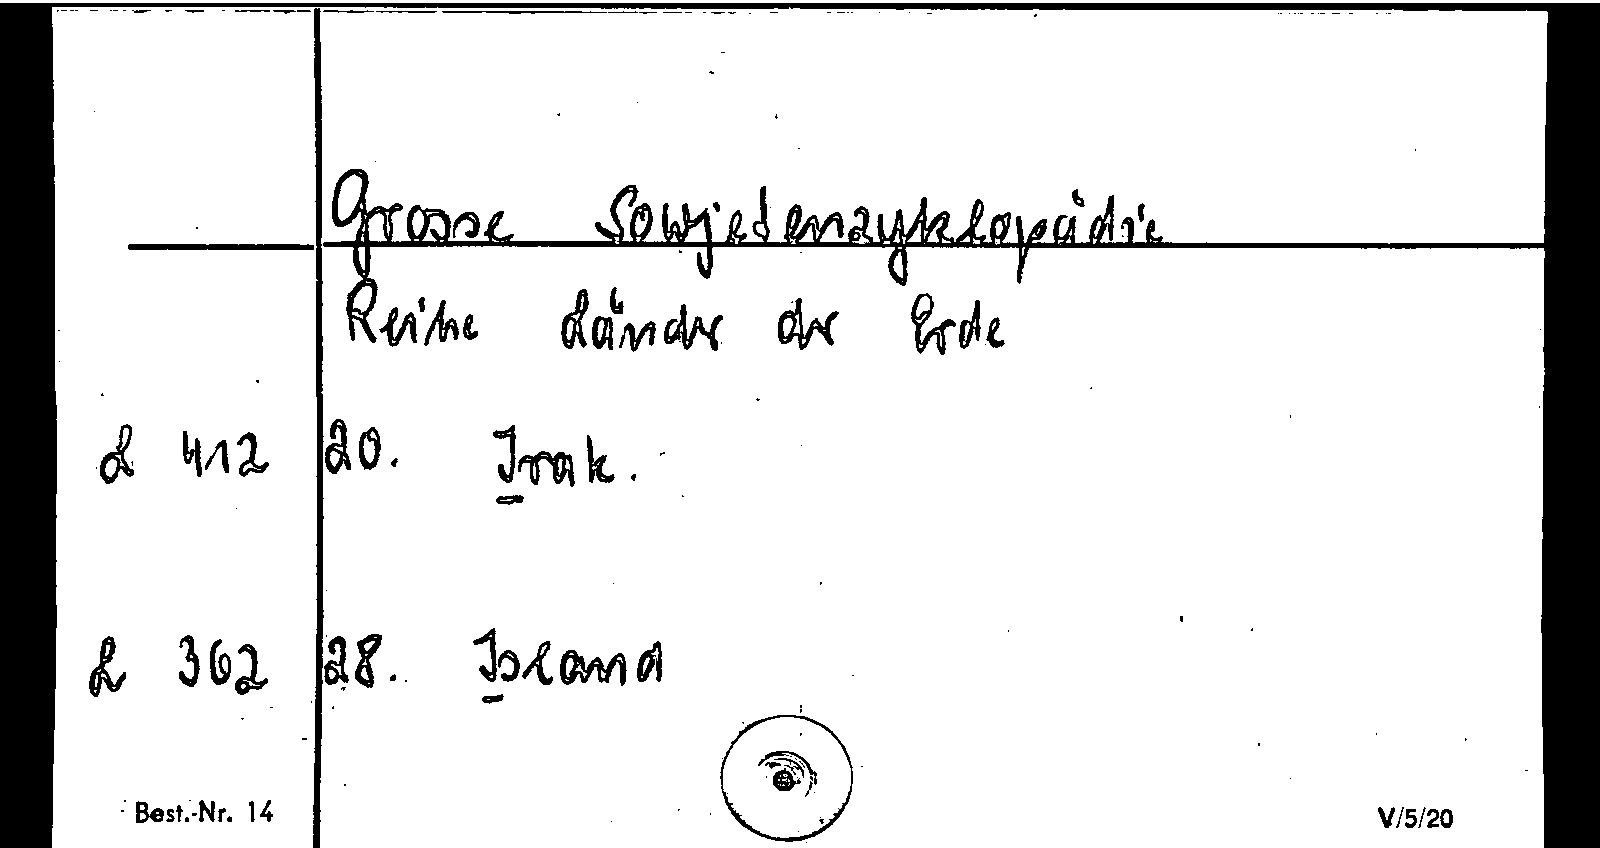 Grosse Sowjetenzyklopädie
Reihe Länder der Erde
L 412 20. Irak.
L 362 28. Island
Best.-Nr. 14 V/5/20